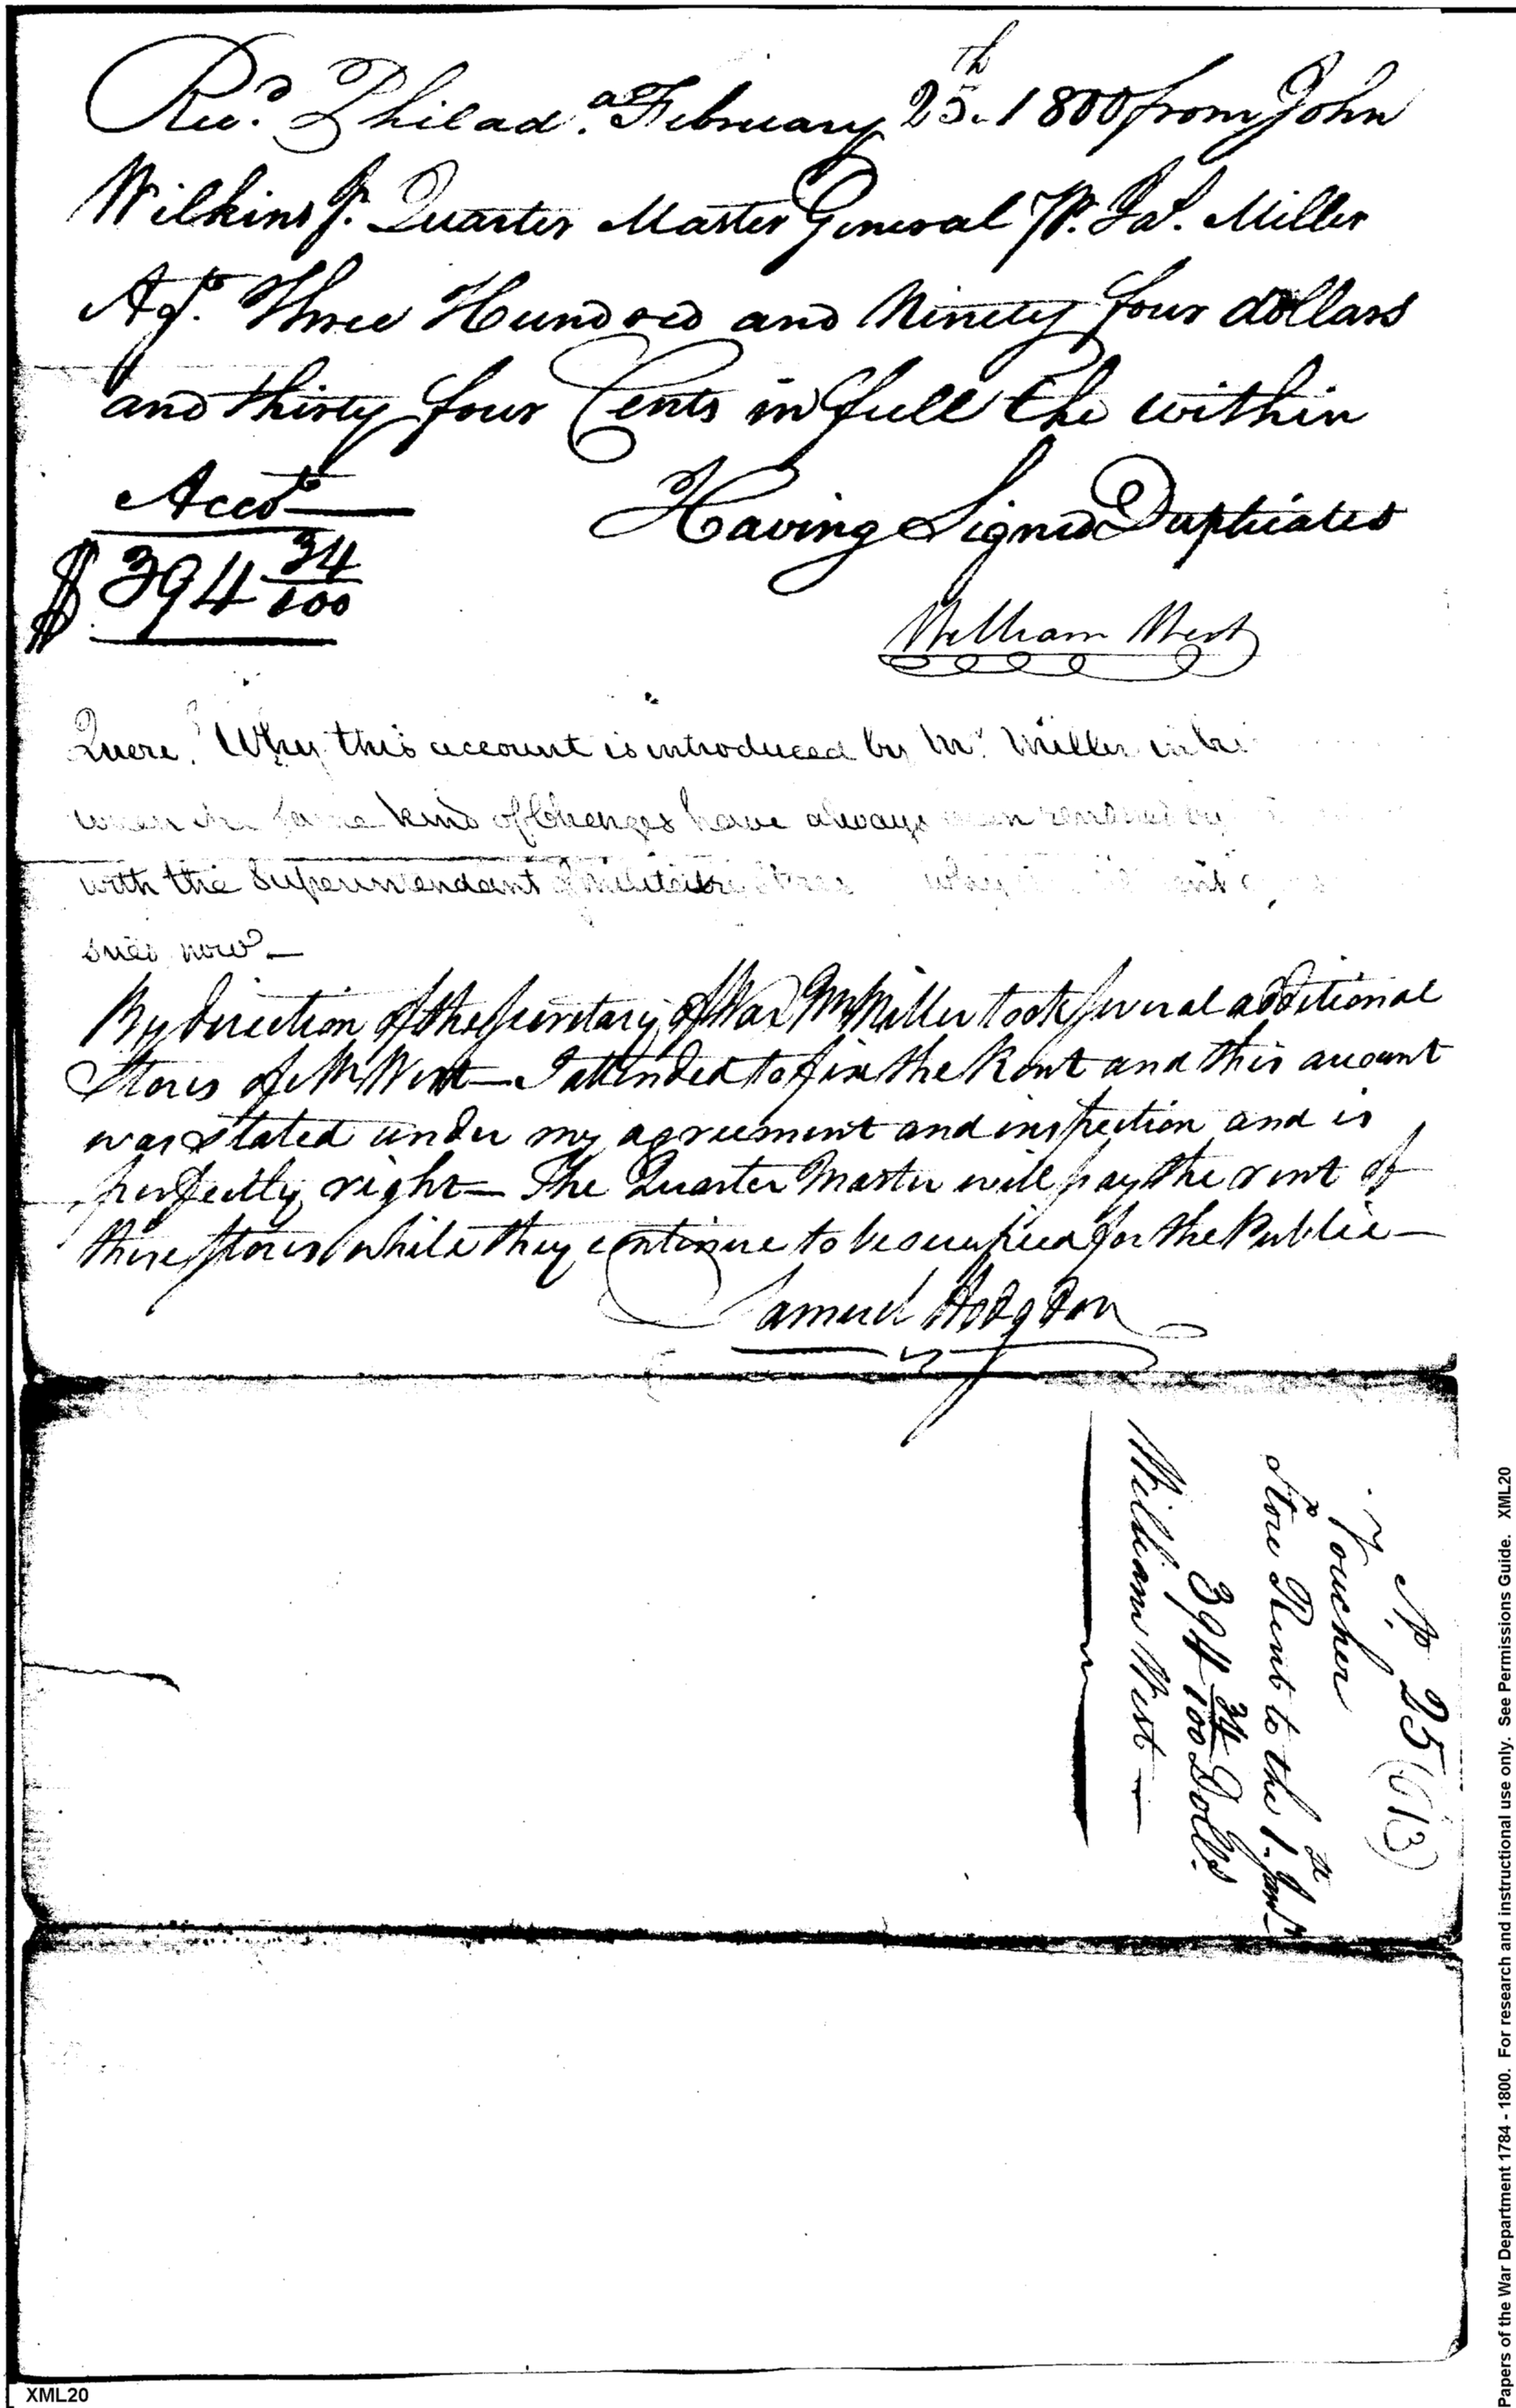 Recd. Philada. February 25th. 1800 from John
Wilkins Jr. Quarter Master General Pr. Jas. Miller
Agt. Three Hundred and Ninety four dollars
and thirty four Cents in full the within
Acct.
Having Signed Duplicates
$394 34/100
William West
Quere. Why this account is introduced by Mr. Miller
when the same kind of Charges have always been rendered by
with the Superintendant of Military Stores why
now —
By direction of the Secretary of War Mr Miller took several additional
Stores of Mr West — I attended to fix the Rent and this account
was stated under my agreement and inspection and is
perfectly right — The Quarter Master will pay the rent of
these Stores while they continue to be occupied for the Public —
Samuel Hodgdon
No 25 (613)
Voucher
Store Rent to the 1st. Jany
394 34/100 Dolls.
William West —
Papers of the War Department 1784 - 1800. For research and instructional use only. See Permissions Guide. XML20
XML20